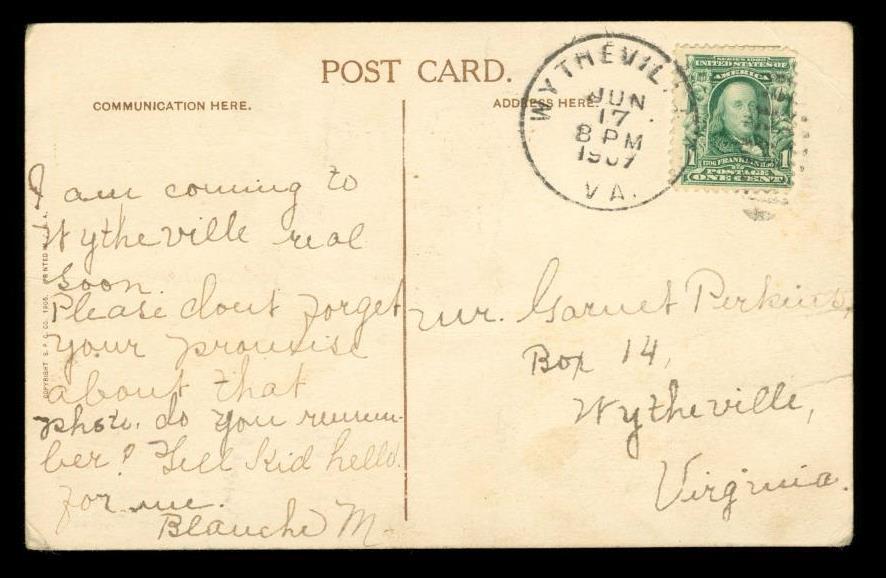 POST CARD.
COMMUNICATION HERE.
ADDRESS HERE.
WYTHEVILL
JUN
17
8 PM
1907
VA.
SERIES 1902
UNITED STATES OF
AMERICA
1 FRANKLIN 1
POSTAGE
ONE CENT
I am coming to
Wytheville real
soon.
Please dont forget
your promise
about that
photo. do you remem-
ber? Tell Kid hello
for me.
Blanche M-
Mr. Garnet Perkins,
Box 14,
Wytheville,
Virginia.
COPYRIGHT S. P. C. CO. 1906. PRINTED IN U. S. A.